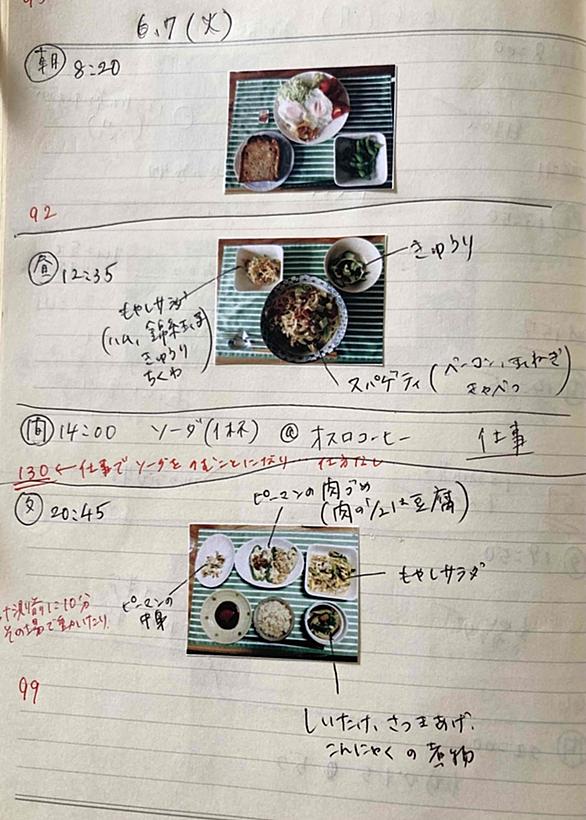 6.7(火)
朝 8:20
92
昼 12:35
きゅうり
もやしサラダ
(ハム、錦糸玉子
きゅうり
ちくわ)
スパゲティ(ベーコン、玉ねぎ
きゃべつ)
間 14:00 ソーダ(1杯) @ オスロコーヒー 仕事
130 ← 仕事でソーダをのむことになり 仕方なし
夕 20:45
ピーマンの肉づめ
(肉の1/2は豆腐)
もやしサラダ
ピーマンの
中身
計測前に10分
その場で
99
しいたけ、さつまあげ、
こんにゃくの煮物